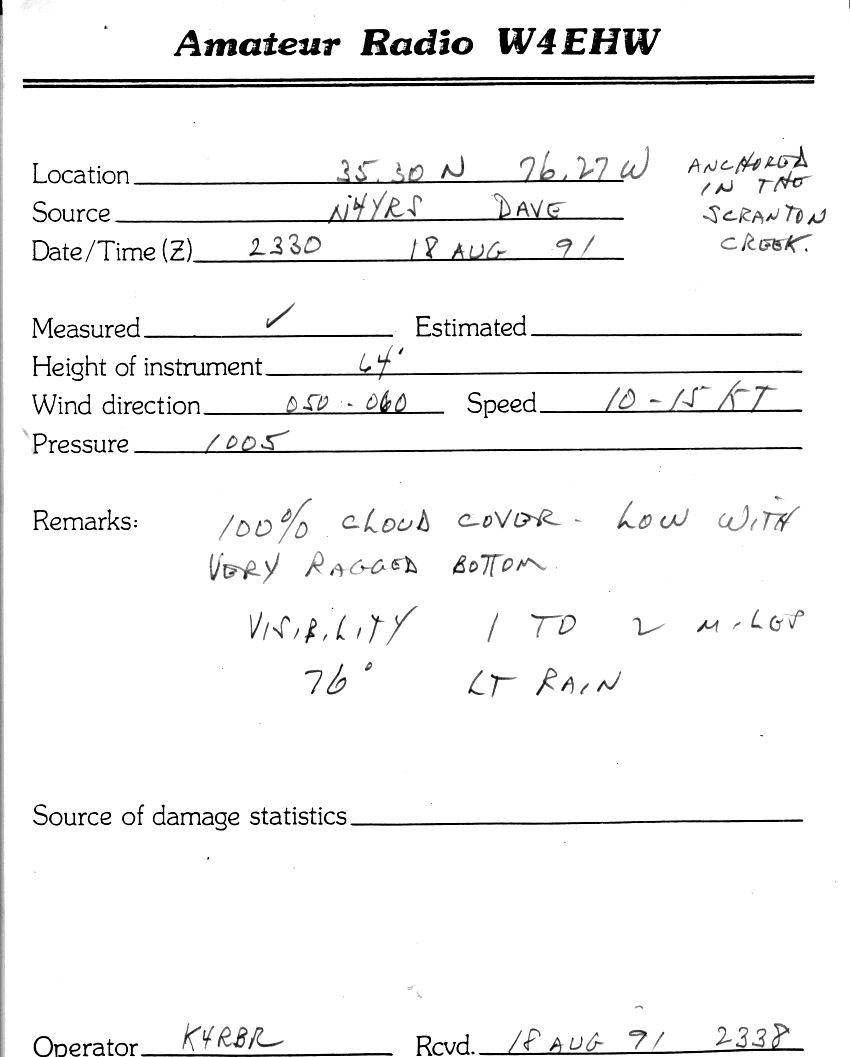 Amateur Radio W4EHW
Location 35.30 N 76.27 W
ANCHORED
IN THE
SCRANTON
CREEK.
Source N4YRS DAVE
Date/Time (Z) 2330 18 AUG 91
Measured ✓ Estimated
Height of instrument 64'
Wind direction 050 - 060 Speed 10-15 KT
Pressure 1005
Remarks: 100% CLOUD COVER - LOW WITH
VERY RAGGED BOTTOM
VISIBILITY 1 TO 2 MILES
76° LT RAIN
Source of damage statistics
Operator K4RBR Rcvd. 18 AUG 91 2338